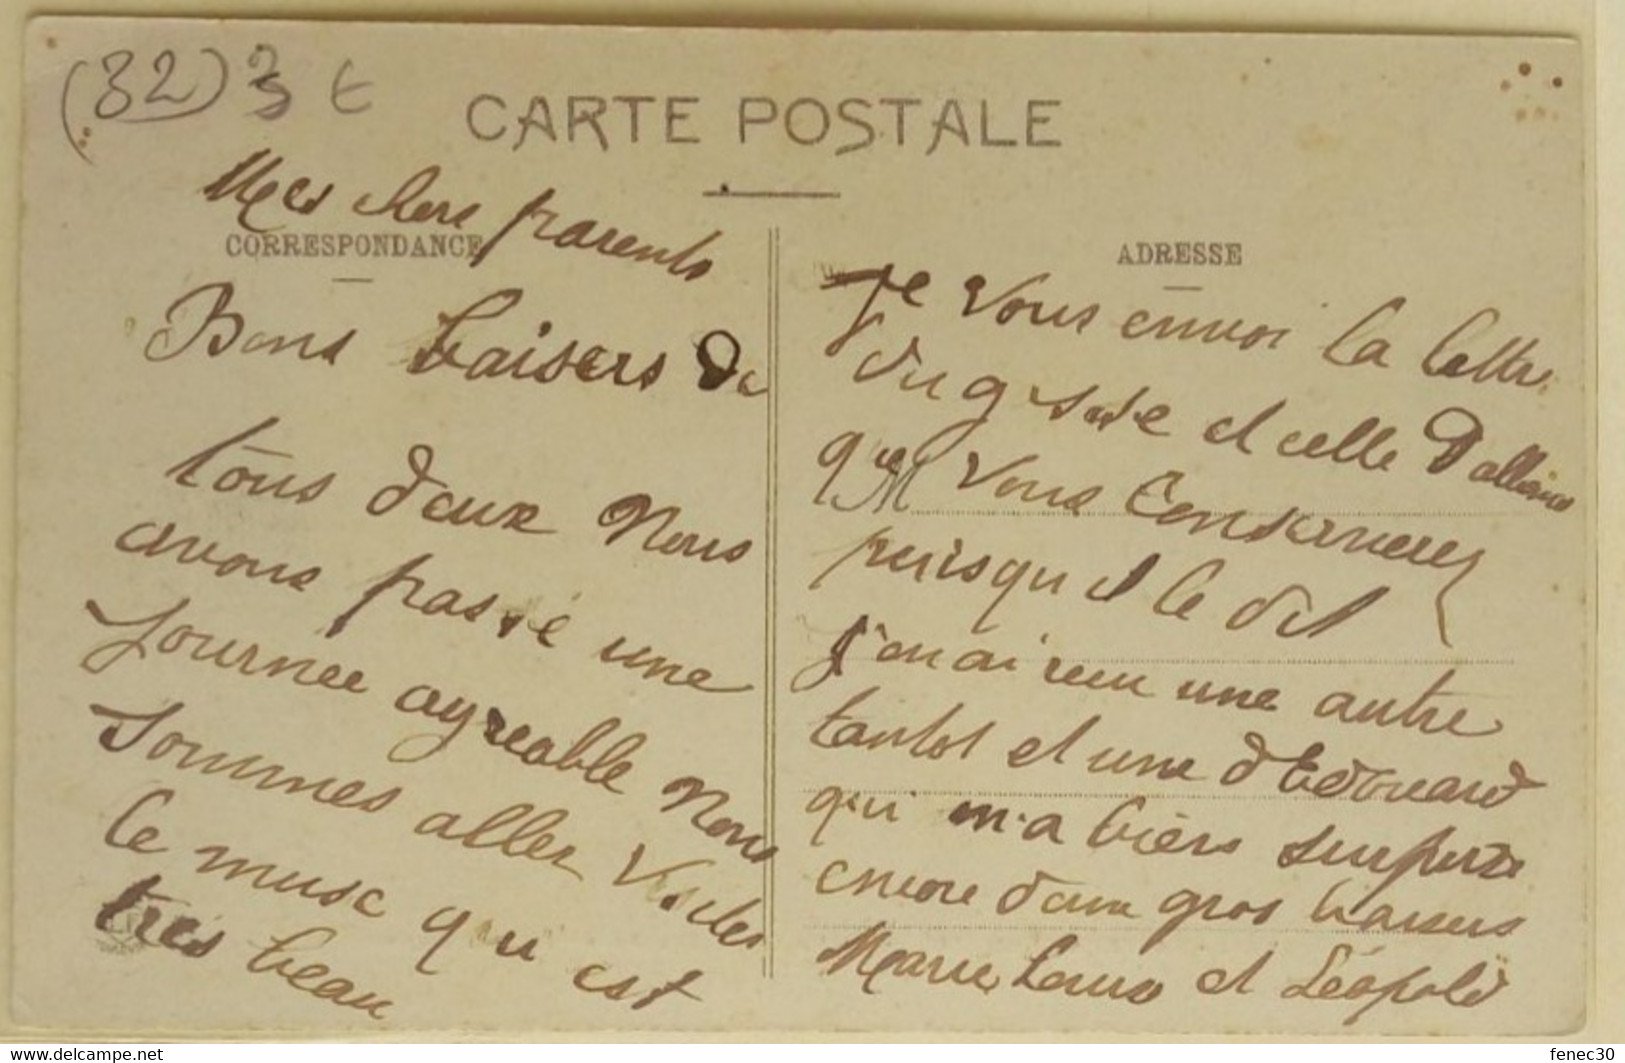 (32) 3 €
CARTE POSTALE
Mes chers parents
CORRESPONDANCE
Bons baisers de
tous deux Nous
avons passé une
journee agreable Nous
sommes aller visiter
le musé qui est
très beau
ADRESSE
Je vous envoi la lettre
du gosse et celle
que vous conserverez
M
puisqu il le dit
j'en ai reçu une autre
tantot et une d'Edouard
qui m'a bien surprise
encore deux gros baisers
Marie Louise et Léopold
www.delcampe.net
fenec30